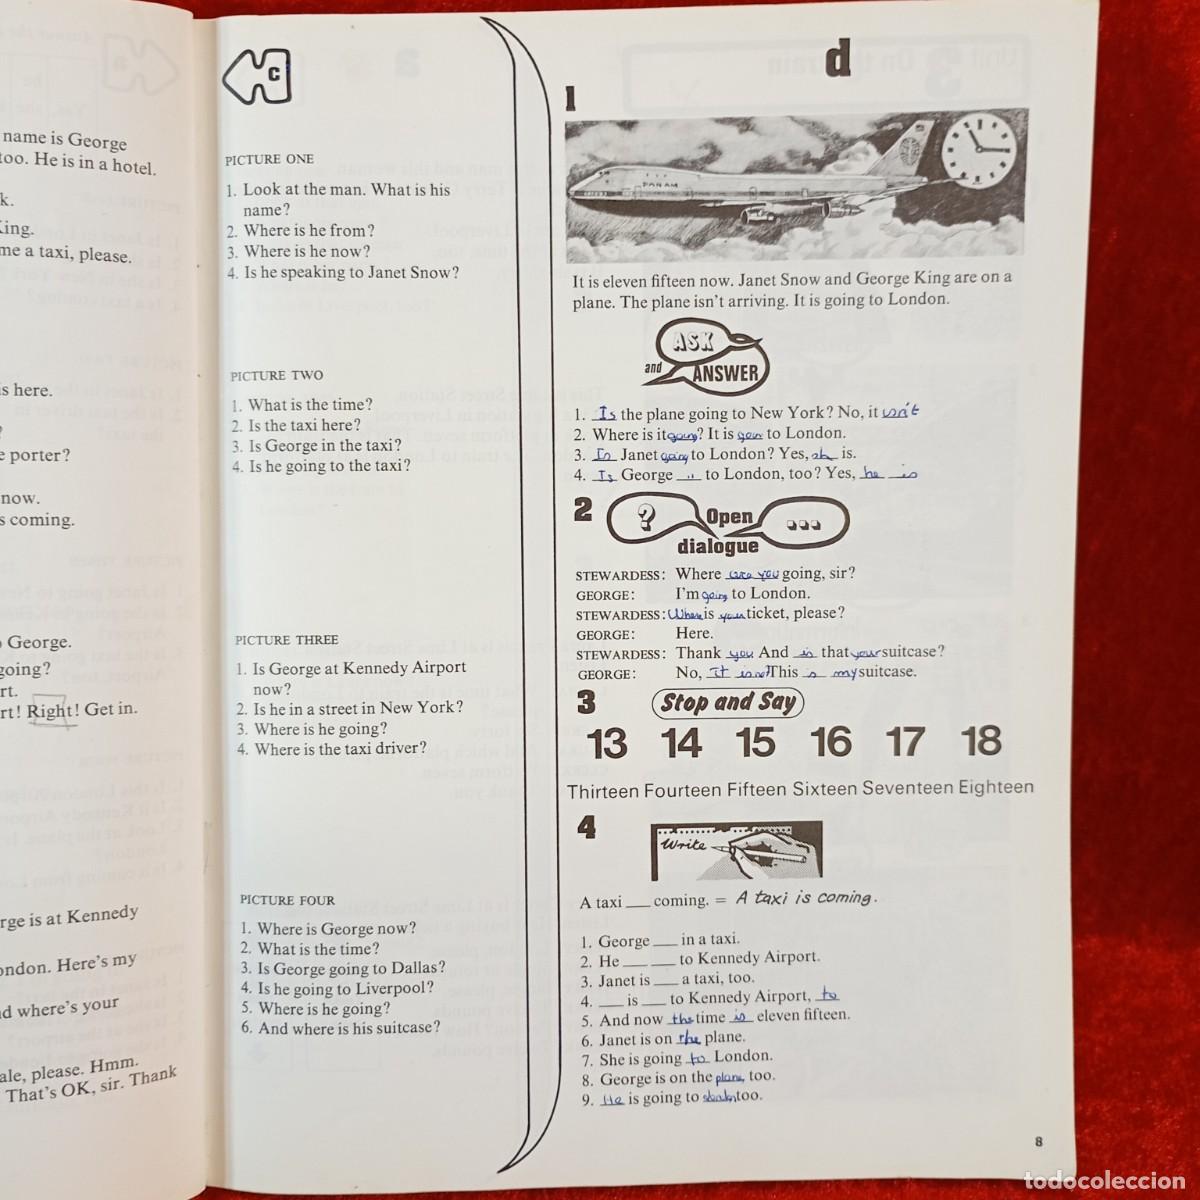 name is George
too. He is in a hotel.
k.
King.
me a taxi, please.
is here.
?
e porter?
now.
s coming.
George.
going?
rt.
rt! Right! Get in.
rge is at Kennedy
ondon. Here's my
d where's your
ale, please. Hmm.
That's OK, sir. Thank
c
PICTURE ONE
1. Look at the man. What is his
name?
2. Where is he from?
3. Where is he now?
4. Is he speaking to Janet Snow?
PICTURE TWO
1. What is the time?
2. Is the taxi here?
3. Is George in the taxi?
4. Is he going to the taxi?
PICTURE THREE
1. Is George at Kennedy Airport
now?
2. Is he in a street in New York?
3. Where is he going?
4. Where is the taxi driver?
PICTURE FOUR
1. Where is George now?
2. What is the time?
3. Is George going to Dallas?
4. Is he going to Liverpool?
5. Where is he going?
6. And where is his suitcase?
d
1
PAN AM
It is eleven fifteen now. Janet Snow and George King are on a
plane. The plane isn't arriving. It is going to London.
ASK
and ANSWER
1. Is the plane going to New York? No, it isn't
2. Where is it going? It is to London.
3. Is Janet going to London? Yes, is.
4. Is George " to London, too? Yes, he is
2
? Open ...
dialogue
STEWARDESS: Where are you going, sir?
GEORGE: I'm going to London.
STEWARDESS: Where is your ticket, please?
GEORGE: Here.
STEWARDESS: Thank you And is that your suitcase?
GEORGE: No, It isn't This is my suitcase.
3 Stop and Say
13 14 15 16 17 18
Thirteen Fourteen Fifteen Sixteen Seventeen Eighteen
4
Write
A taxi ___ coming. = A taxi is coming.
1. George ___ in a taxi.
2. He ___ ___ to Kennedy Airport.
3. Janet is ___ a taxi, too.
4. ___ is ___ to Kennedy Airport, to
5. And now the time is eleven fifteen.
6. Janet is on the plane.
7. She is going to London.
8. George is on the plane, too.
9. He is going to too.
8
todocoleccion